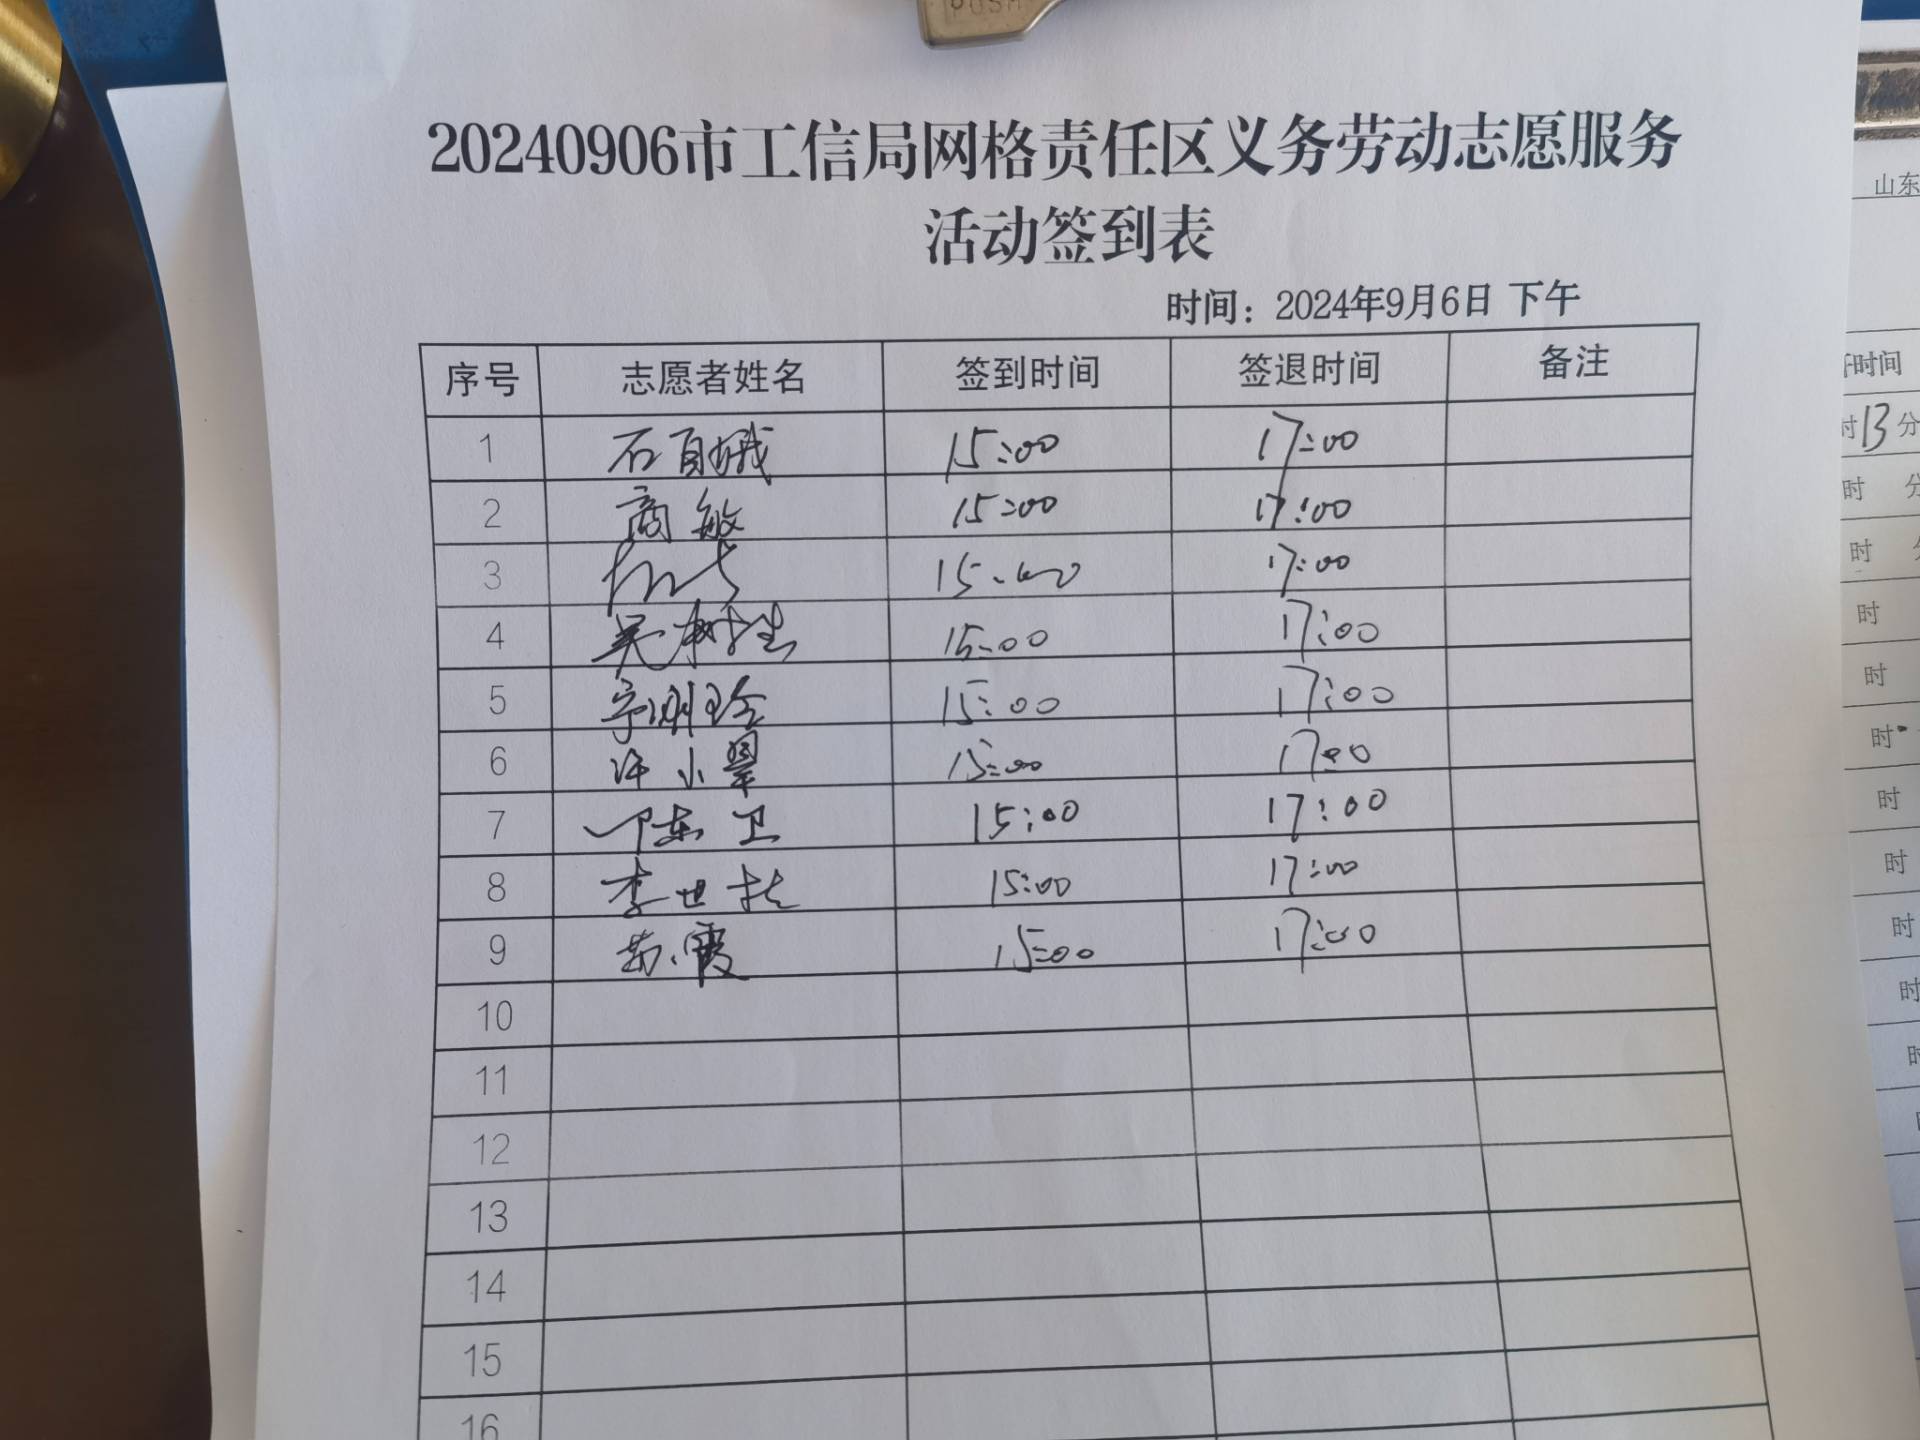 PUSH
20240906市工信局网格责任区义务劳动志愿服务
活动签到表
时间：2024年9月6日 下午
序号 志愿者姓名 签到时间 签退时间 备注
1 石 15:00 17:00
2 商敏 15:00 17:00
3 15:00 17:00
4 吴树生 15:00 17:00
5 宁明玲 15:00 17:00
6 许小翠 15:00 17:00
7 陈卫 15:00 17:00
8 李世 15:00 17:00
9 霞 15:00 17:00
10
11
12
13
14
15
16
山东
时间
时13分
时 分
时
时
时
时
时
时
时
时
时